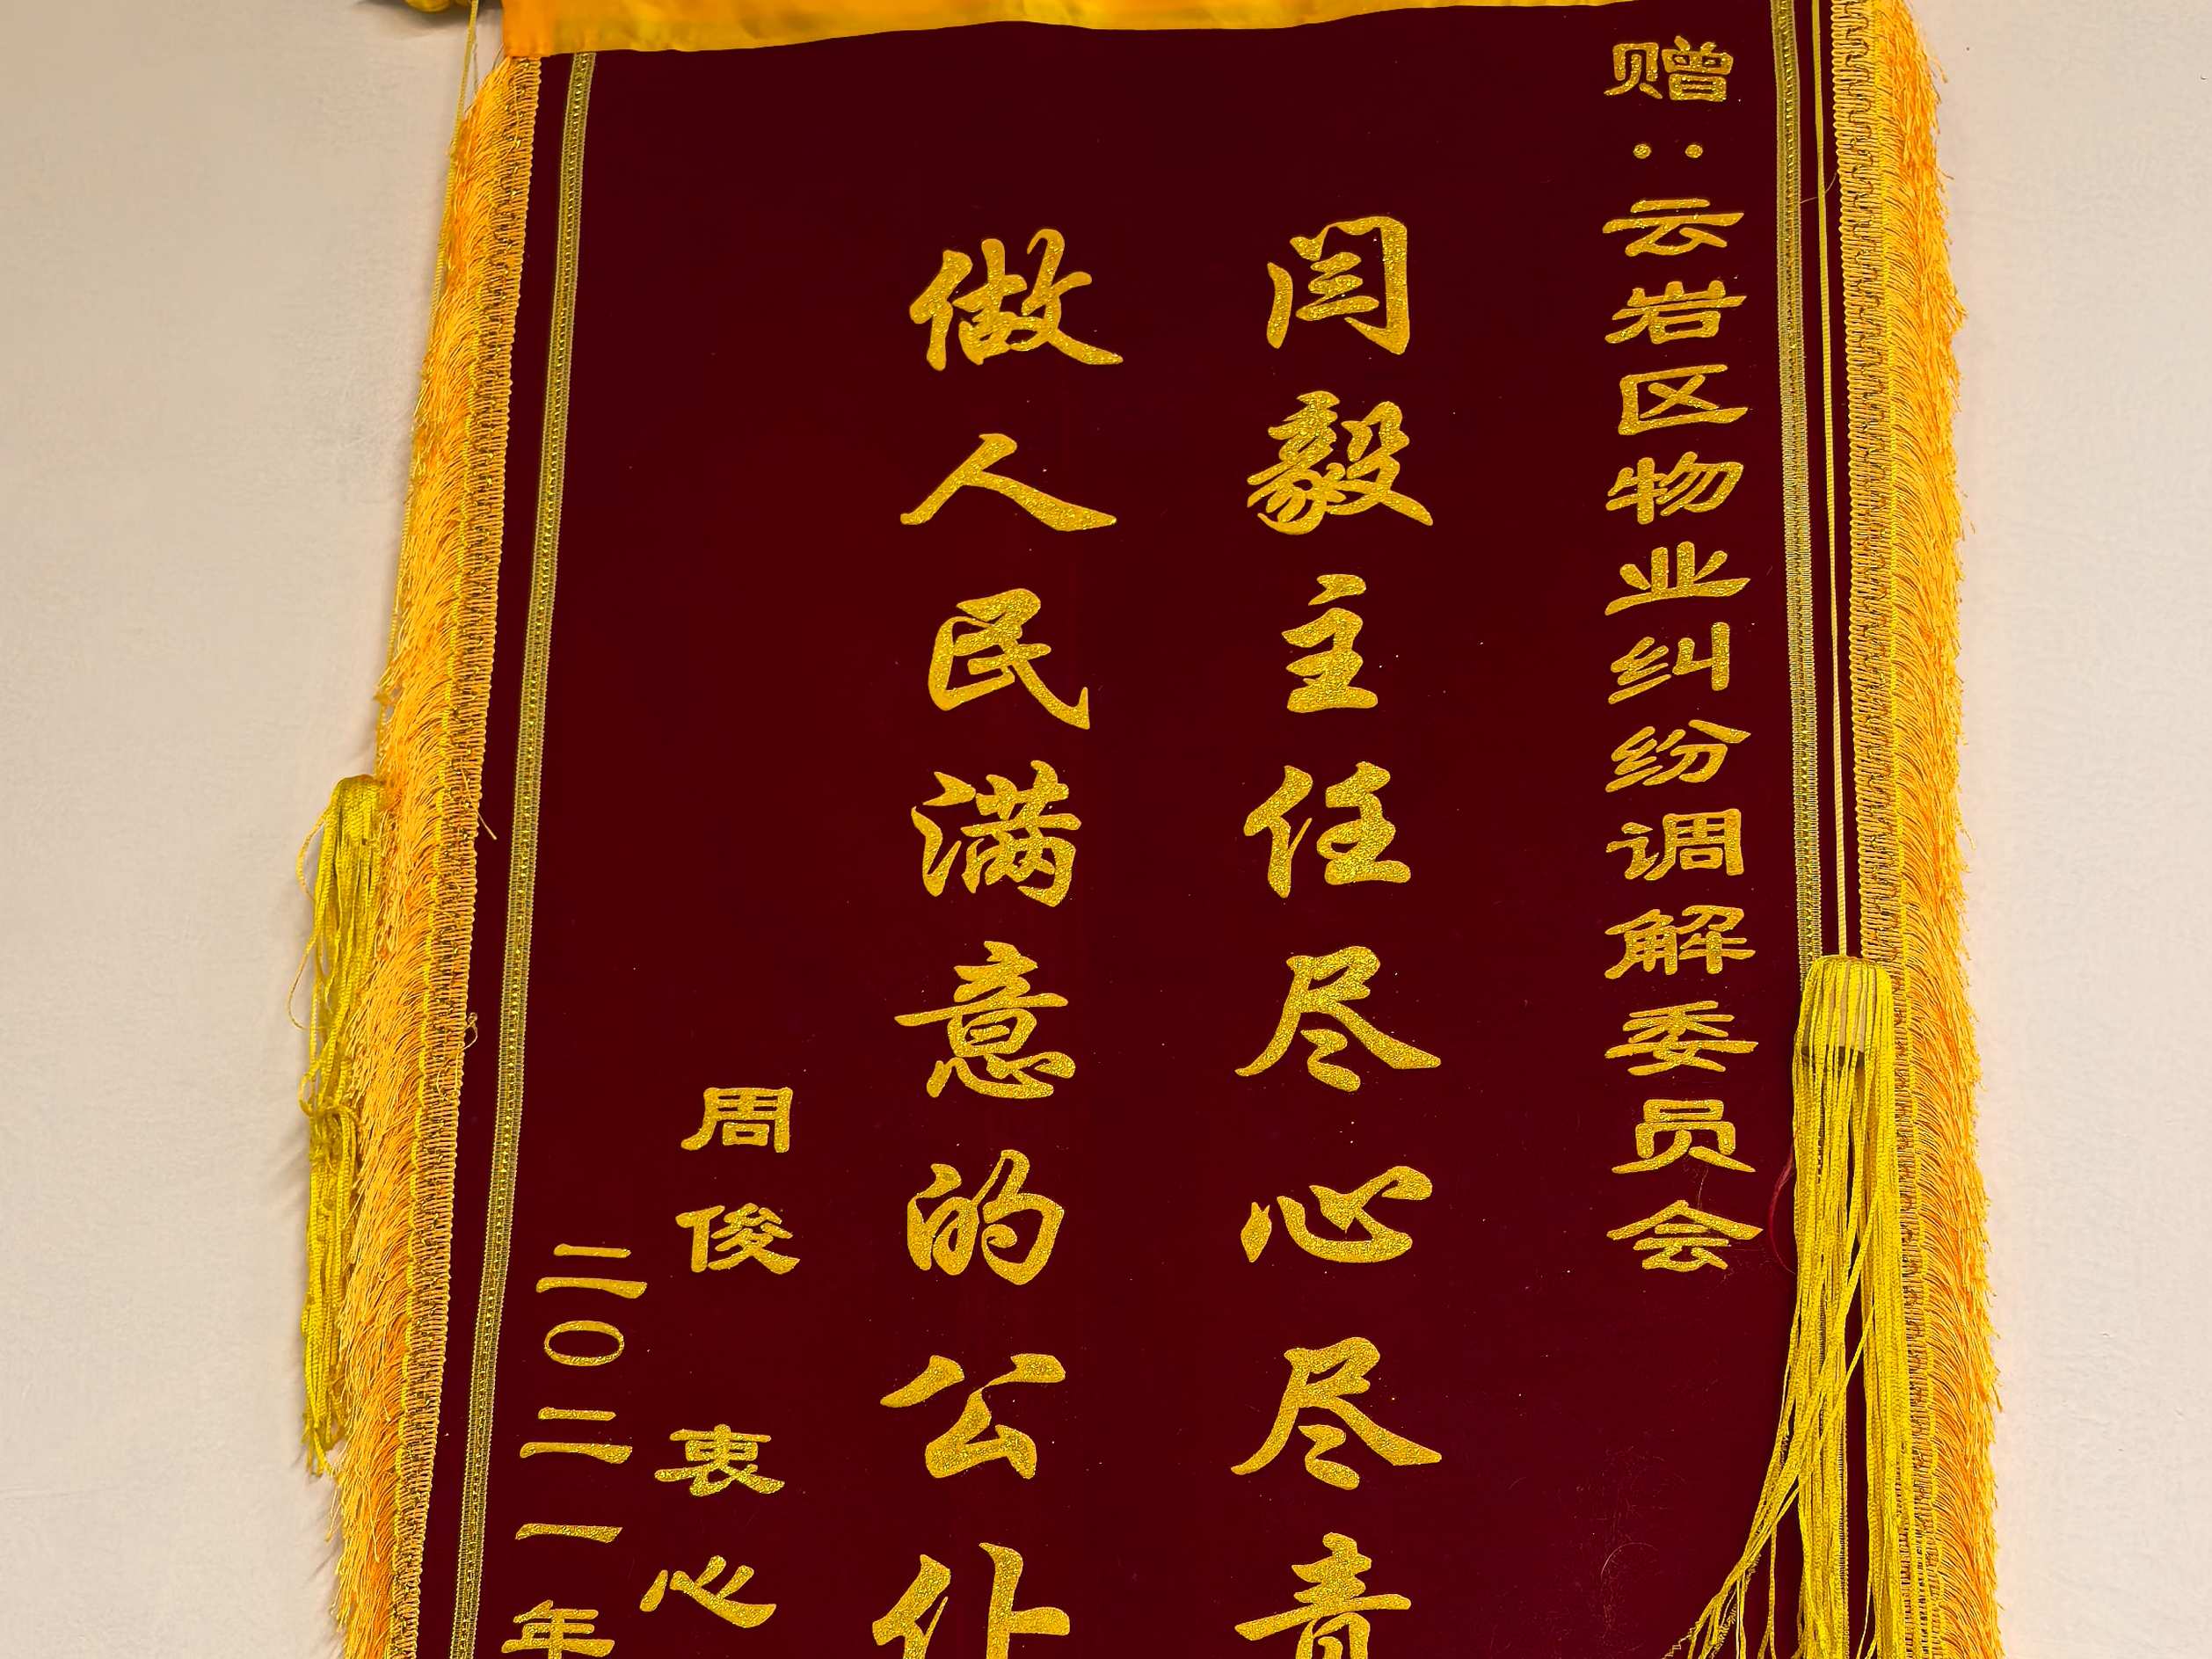 赠：云岩区物业纠纷调解委员会
闫毅主任尽心尽责
做人民满意的公仆
周俊 衷心
二〇二一年